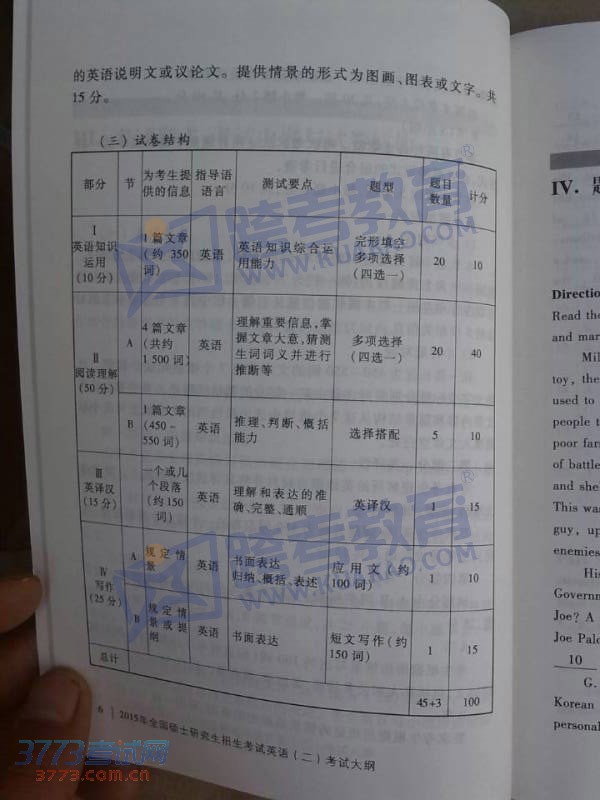 的英语说明文或议论文。提供情景的形式为图画、图表或文字。共
15 分。
(三) 试卷结构
部分 节 为考生提供的信息 指导语语言 测试要点 题型 题目数量 计分
Ⅰ 英语知识运用 (10 分) 1 篇文章 (约 350 词) 英语 英语知识综合运用能力 完形填空 多项选择 (四选一) 20 10
Ⅱ 阅读理解 (50 分) A 4 篇文章 (共约 1 500 词) 英语 理解重要信息,掌握文章大意,猜测生词词义并进行推断等 多项选择 (四选一) 20 40
B 1 篇文章 (450 ~ 550 词) 英语 推理、判断、概括能力 选择搭配 5 10
Ⅲ 英译汉 (15 分) 一个或几个段落 (约 150 词) 英语 理解和表达的准确、完整、通顺 英译汉 1 15
Ⅳ 写作 (25 分) A 规定情景 英语 书面表达 归纳、概括、表述 应用文 (约 100 词) 1 10
B 规定情景或提纲 英语 书面表达 短文写作 (约 150 词) 1 15
总计 45+3 100
6 2015年全国硕士研究生招生考试英语(二)考试大纲
Ⅳ. 题
Directio
Read the
and mar
Mil
toy, the
used to
people t
poor farm
of battle
and she
This was
guy, up
enemies
His
Governm
Joe? A
Joe Palo
10
G.
Korean
personal
跨考教育®
跨考教育®
3773考试网
www.3773.com.cn